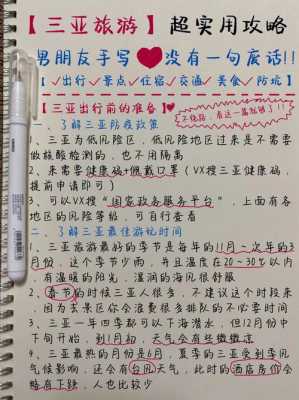 【三亚旅游】超实用攻略
男朋友手写❤没有一句废话!!
【✓出行✓景点✓住宿✓交通✓美食✓防坑】
【三亚出行前的准备】❤
不绕路，看这一篇就够了!
一、了解三亚防疫政策
1、三亚为低风险区，低风险地区过来是不需要
做核酸检测的，也不用隔离
2、来需要健康码+佩戴口罩(VX搜三亚健康码，
提前申请即可)
3、可以VX搜"国家政务服务平台"，上面有各
地区的风险等级，可自行查看
二、了解三亚最佳游玩时间
1、三亚旅游最好的季节是每年的11月~次年的3
月份，这个季节少雨，并且温度在20~30℃以内
，有温暖的阳光，湿润的海风很舒服
2、春节的时候三亚人很多，不建议这个时段来
，因为去景区你会浪费很多排队的不必要时间
3、三亚一年四季都可以下海潜水，但12月份中
下旬开始，到1月初，天气会有些微微凉
4、三亚最热的月份是6月，夏季的三亚受到季风
气候影响，还会有台风天气，此时的酒店房价会
略有下跌，人也比较少